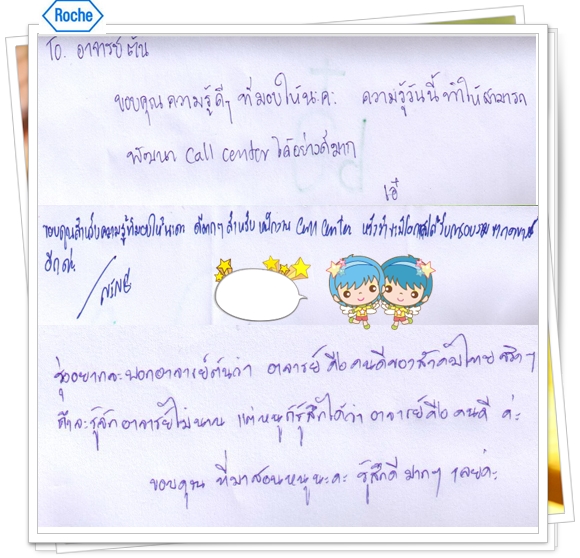 Roche
To. อาจารย์ต้น
ขอบคุณความรู้ดีๆ ที่มอบให้นะคะ ความรู้วันนี้ทำให้สามารถ
พัฒนา Call Center ได้อย่างดีมาก
เอ๋
ขอบคุณสำหรับความรู้ที่มอบให้นะคะ ดีมากๆ สำหรับ พนักงาน Call Center
อีกค่ะ
อยากจะบอกอาจารย์ต้นว่า อาจารย์ คือ คนดีของสังคมไทย จริงๆ
ถึงจะรู้จักอาจารย์ไม่นาน แต่หนูก็รู้สึกได้ว่า อาจารย์คือ คนดี ค่ะ
ขอบคุณ ที่มาสอนหนูนะคะ รู้สึกดี มากๆ เลยค่ะ